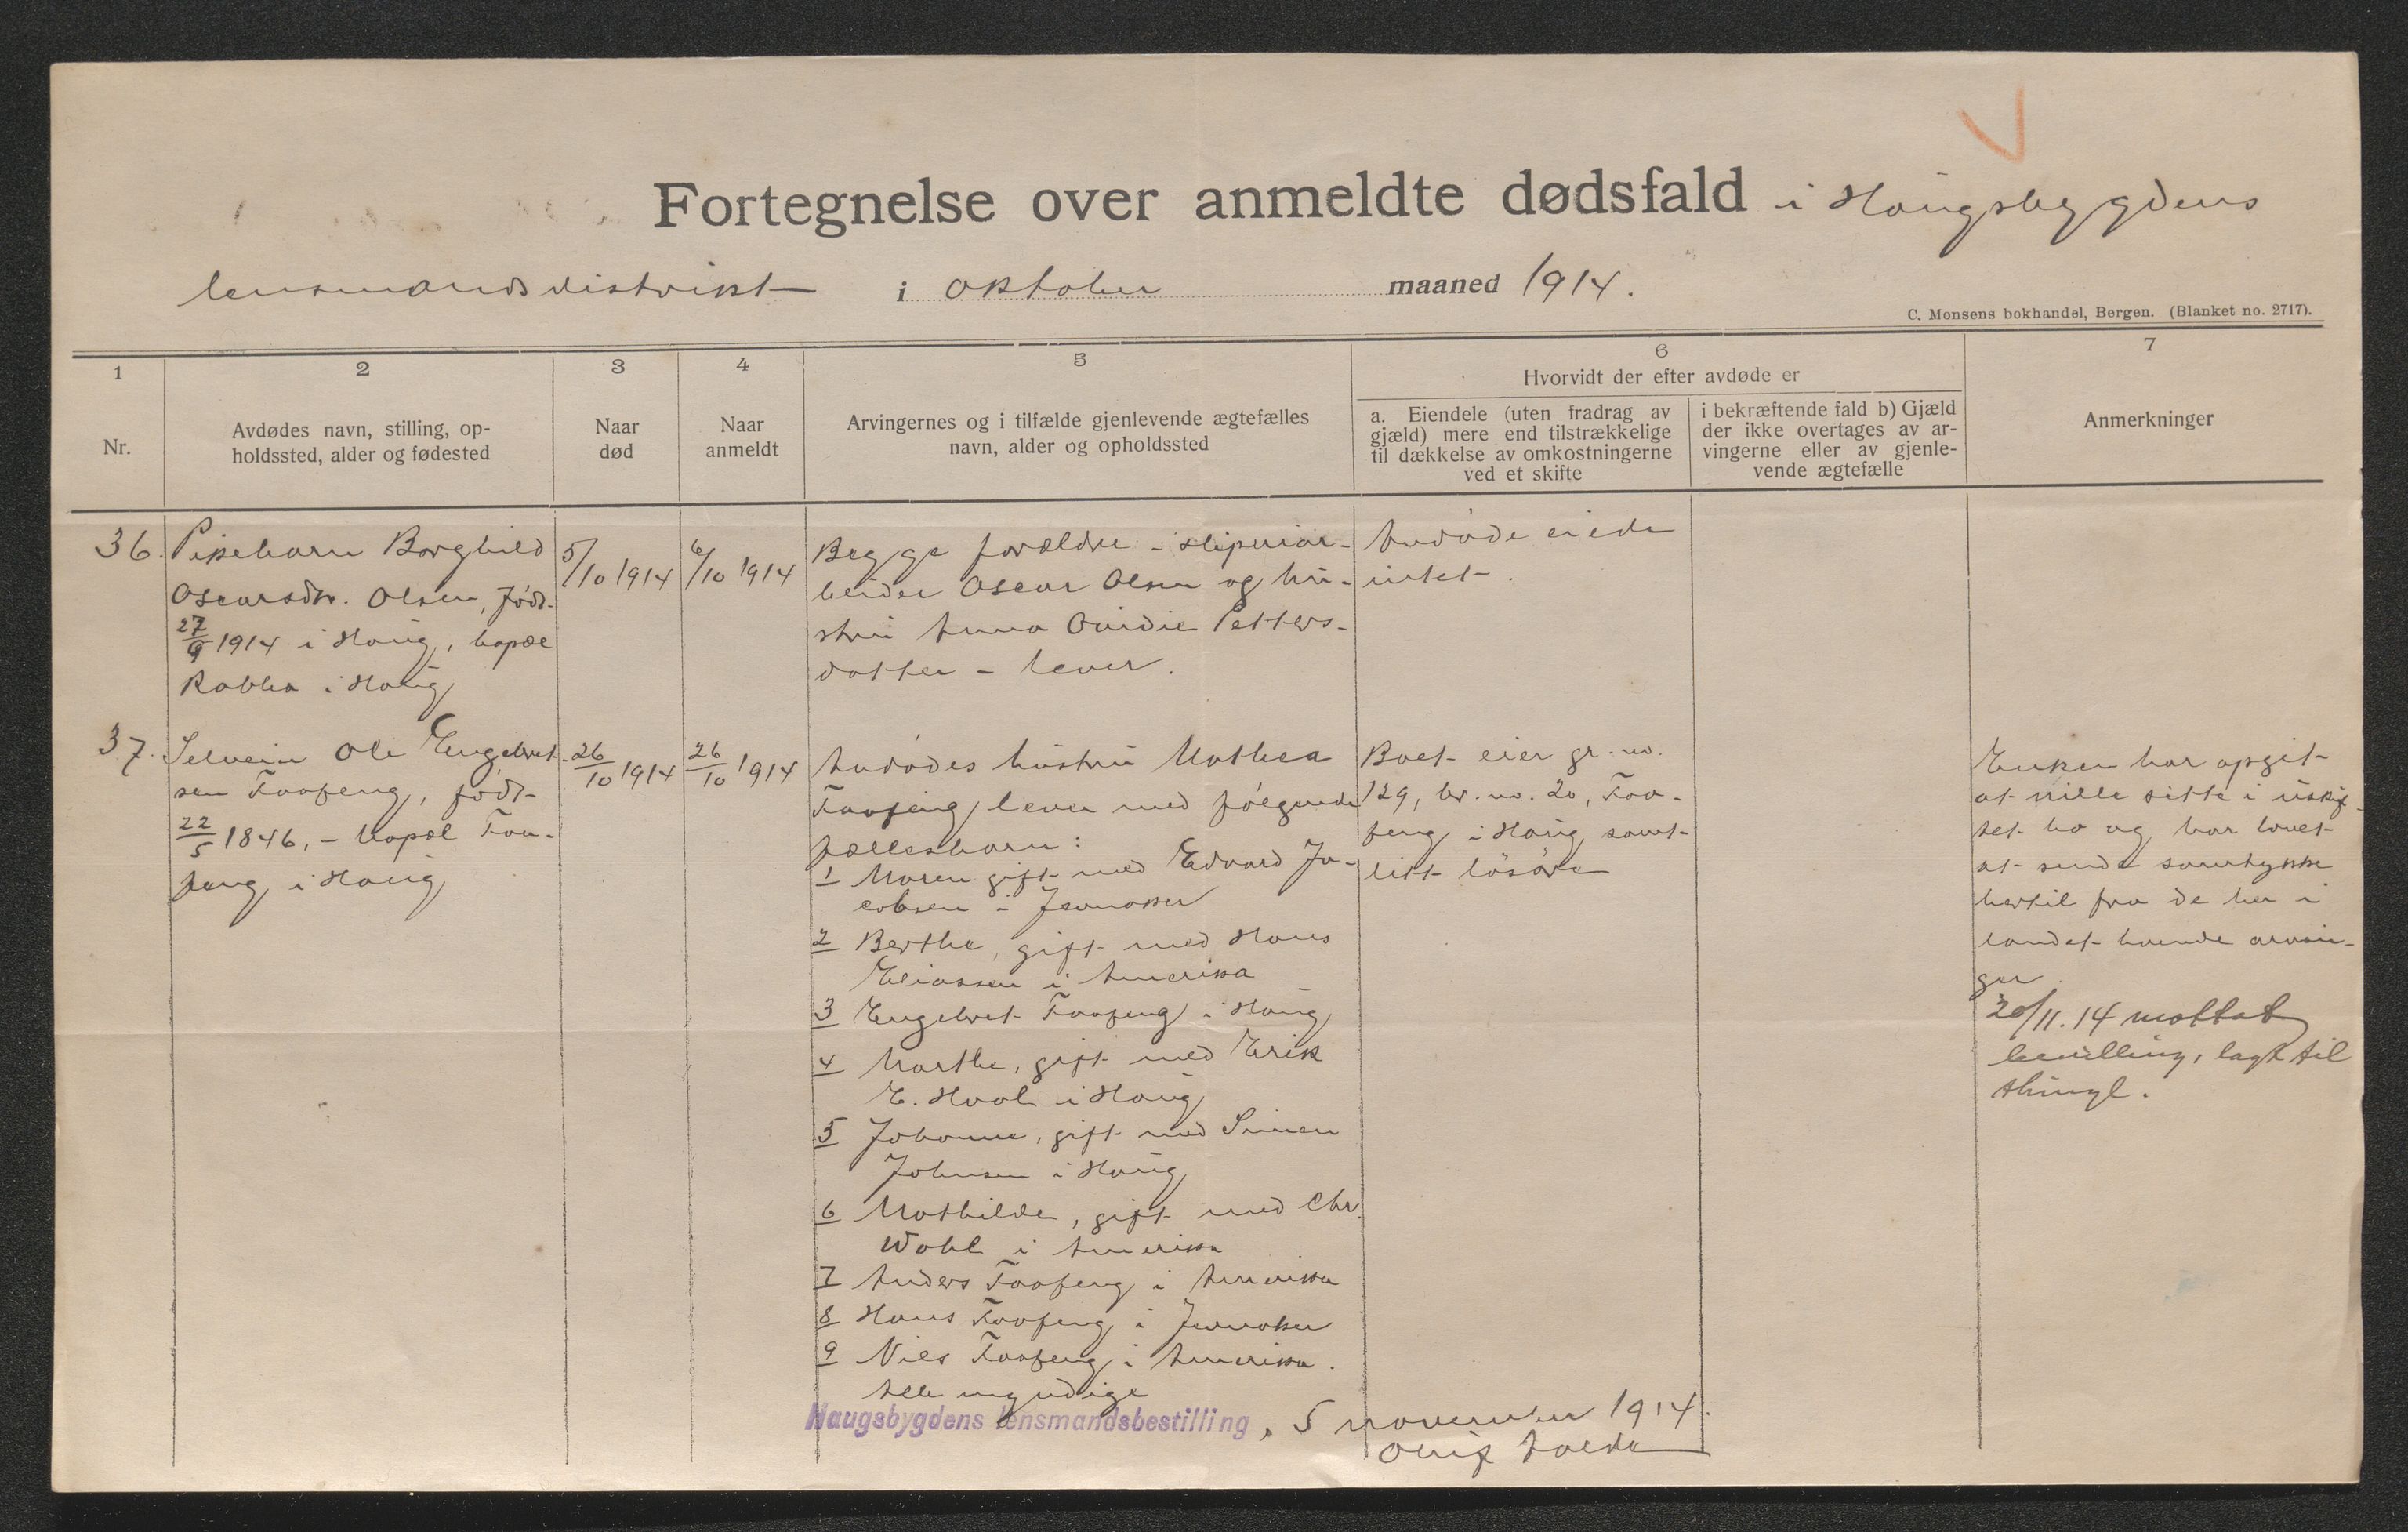 Fortegnelse over anmeldte dødsfald i Haugsbygdens
lensmandsdistrikt i oktober maaned 1914.
C. Monsens bokhandel, Bergen. (Blanket no. 2717).
1
Nr.
2
Avdødes navn, stilling, op-
holdssted, alder og fødested
3
Naar
død
4
Naar
anmeldt
5
Arvingernes og i tilfælde gjenlevende ægtefælles
navn, alder og opholdssted
6
Hvorvidt der efter avdøde er
a. Eiendele (uten fradrag av
gjæld) mere end tilstrækkelige
til dækkelse av omkostningerne
ved et skifte
i bekræftende fald b) Gjæld
der ikke overtages av ar-
vingerne eller av gjenle-
vende ægtefælle
7
Anmerkninger
36.
Pikebarn Borghild
Oscarsdtr. Olsen, født
27/9 1914 i Haug, bopæl
Rabba i Haug
5/10 1914
6/10 1914
Begge forældre - sliperiar-
beider Oscar Olsen og hu-
stru Anna Ovidie Petters-
datter - lever.
Avdøde eiede
intet.
37.
Selveier Ole Engebret-
sen Faafeng, født
22/5 1846, - bopæl Faa-
feng i Haug
26/10 1914
26/10 1914
Avdødes hustru Mathea
Faafeng lever med følgende
fællesbarn:
1 Maren gift med Edvard Ja-
cobsen i Jevnaker
2 Berthe, gift med Hans
Eliassen i Amerika
3 Engebret Faafeng i Haug
4 Marthe, gift med Erik
E. Hval i Haug
5 Johanne, gift med Simen
Johnsen i Haug
6 Mathilde, gift med Chr.
Wold i Amerika
7 Anders Faafeng i Amerika
8 Hans Faafeng i Jevnaker
9 Nils Faafeng i Amerika.
Alle myndige
Boet eier gr. no.
129, br. no. 20, Faa-
feng i Haug samt
litt løsøre
Enken har opgit
at ville sitte i uskif-
tet bo og har lovet
at sende samtykke
hertil fra de her i
landet boende arvin-
ger
20/11.14 mottat
bevilling, lagt til
thingl.
Haugsbygdens lensmandsbestilling, 5 november 1914.